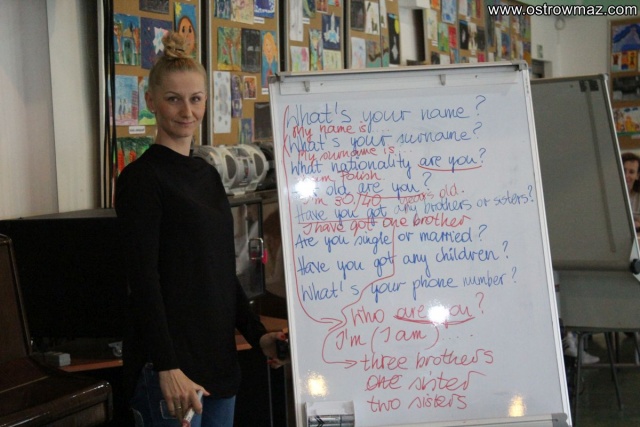 www.ostrowmaz.com
What's your name?
My name is
What's your surname?
My surname is
What nationality are you?
I'm Polish
How old are you?
I'm 30/40 years old.
Have you got any brothers or sisters?
I have got one brother
Are you single or married?
Have you got any children?
What's your phone number?
Who are you?
I'm (I am) .....
three brothers
one sister
two sisters